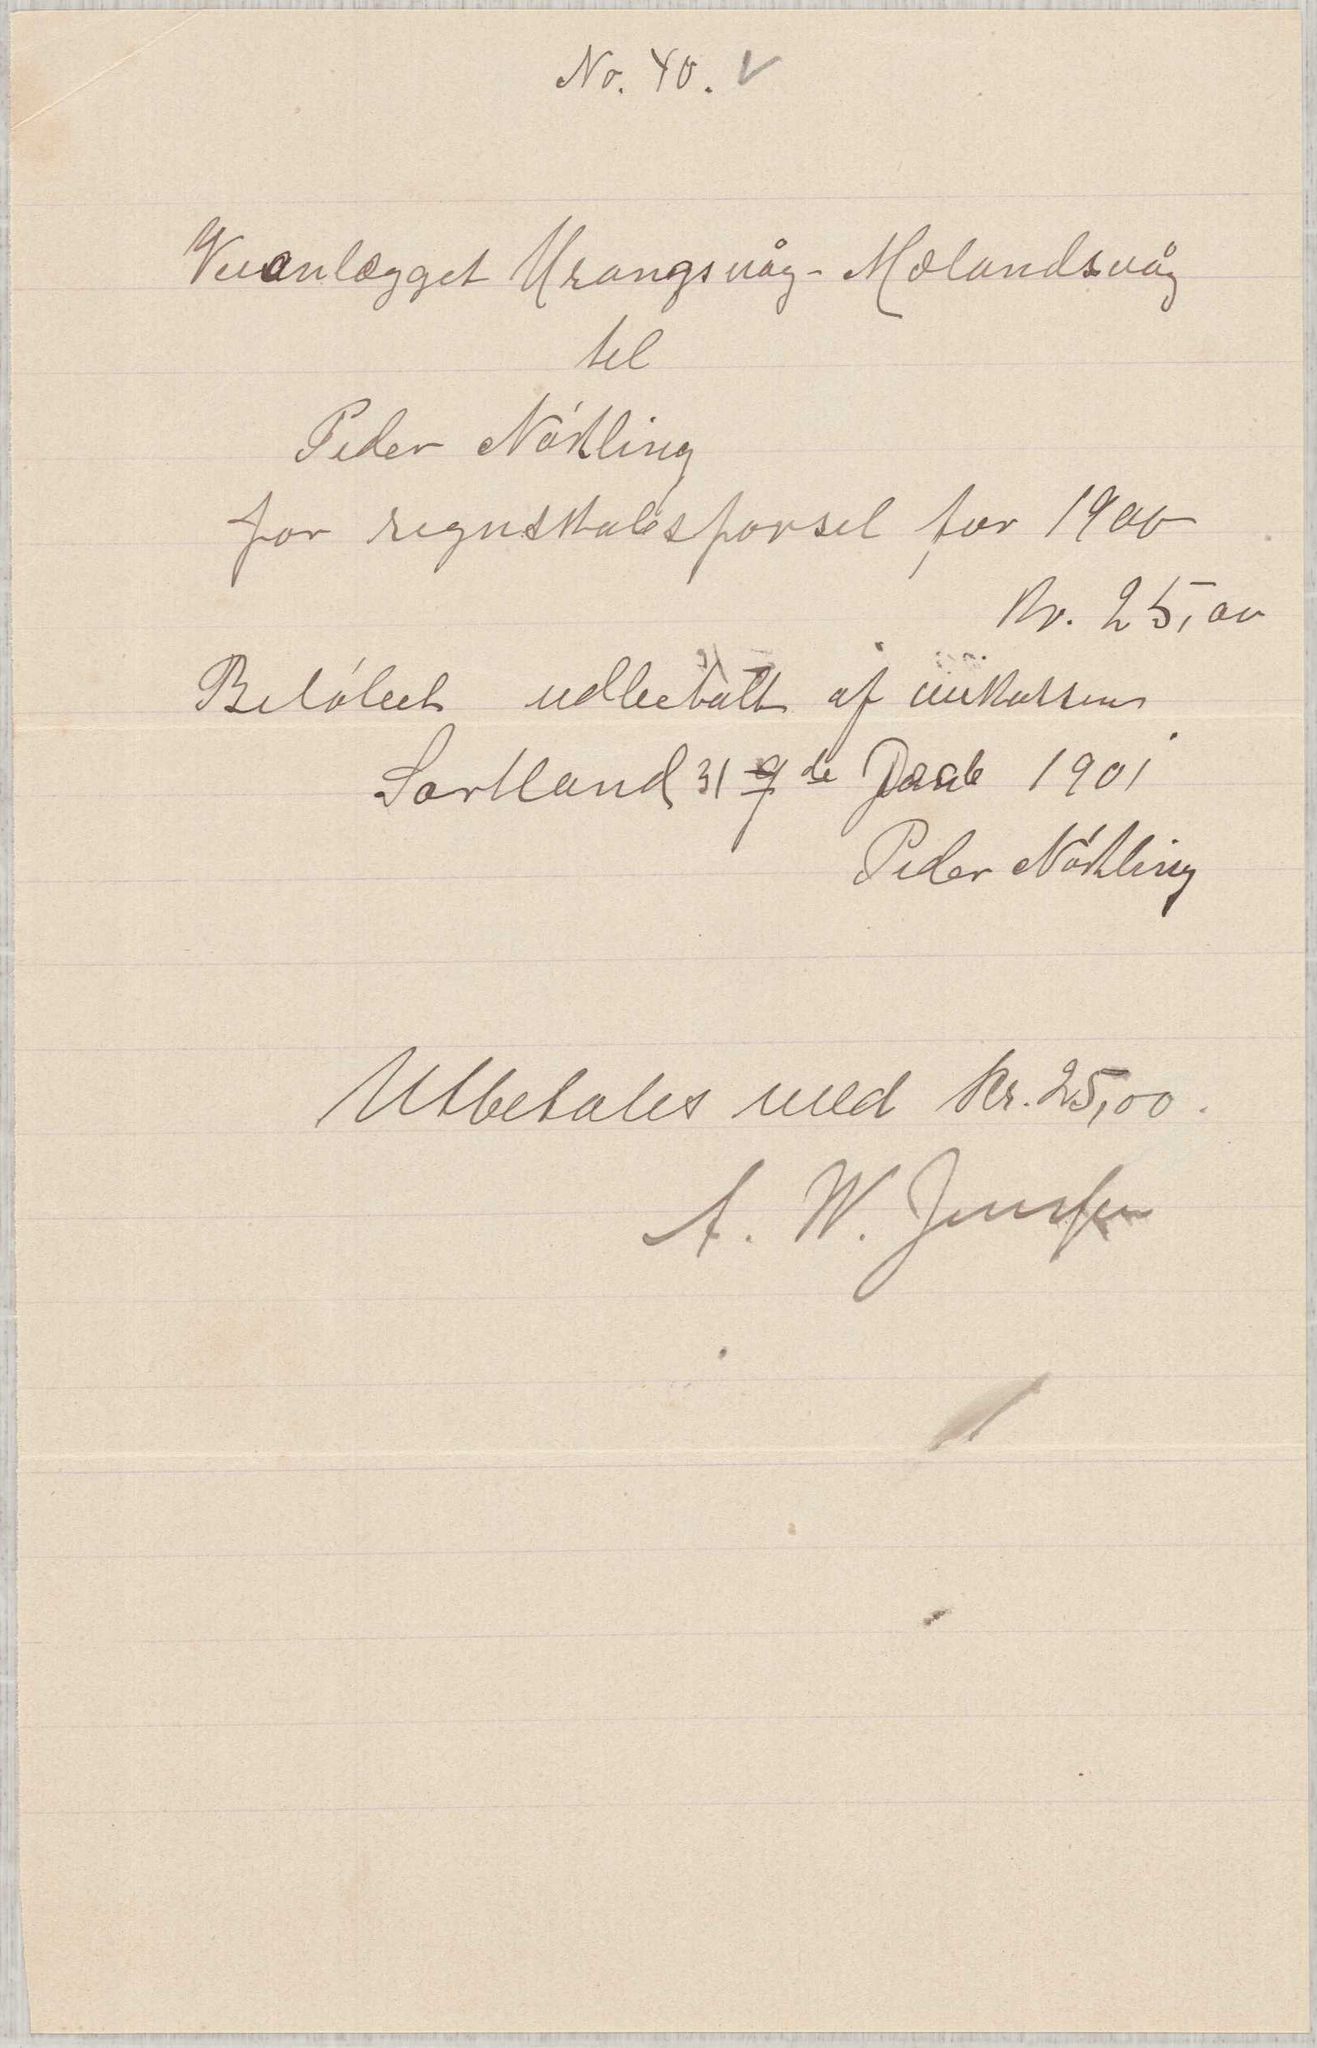 No. 40. V
Veianlægget Urangsvåg - Mælandsvåg
til
Peder Nökling
for regnskabsförsel for 1900
Kr. 25,00
Belöbet udbetalt af veikassen
Sortland 31 de 1901
Peder Nökling
Utbetales med Kr. 25,00.
A. W. Jenssen